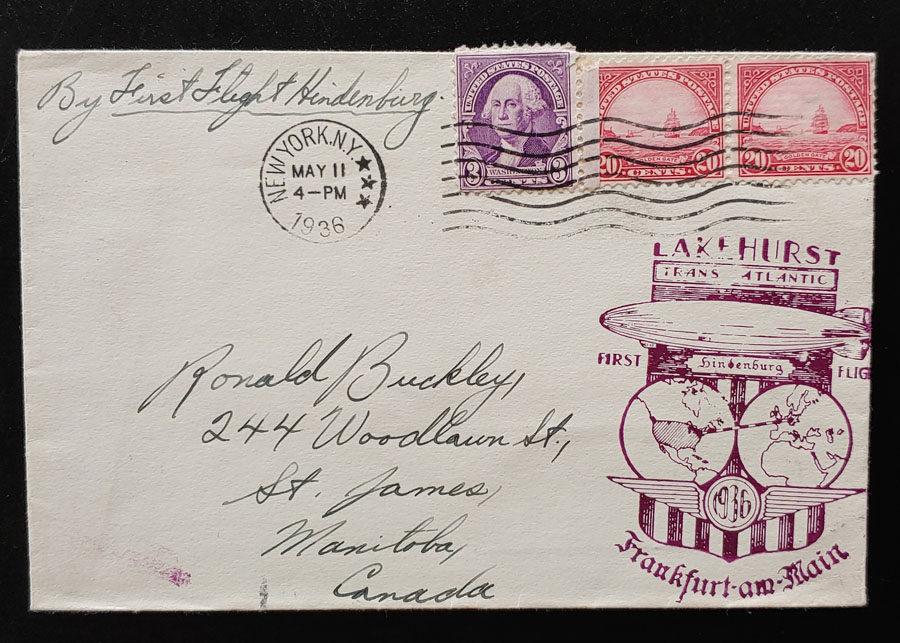 By First Flight Hindenburg.
NEW YORK, N.Y.
MAY 11
4-PM
1936
UNITED STATES POSTAGE
3 WASHINGTON 3
CENTS
UNITED STATES POSTAGE
GOLDEN GATE
20 CENTS 20
UNITED STATES POSTAGE
GOLDEN GATE
20 CENTS 20
LAKEHURST
TRANS ATLANTIC
FIRST Hindenburg FLIG
1936
Frankfurt-am-Main
Ronald Buckley,
244 Woodlawn St.,
St. James,
Manitoba,
Canada